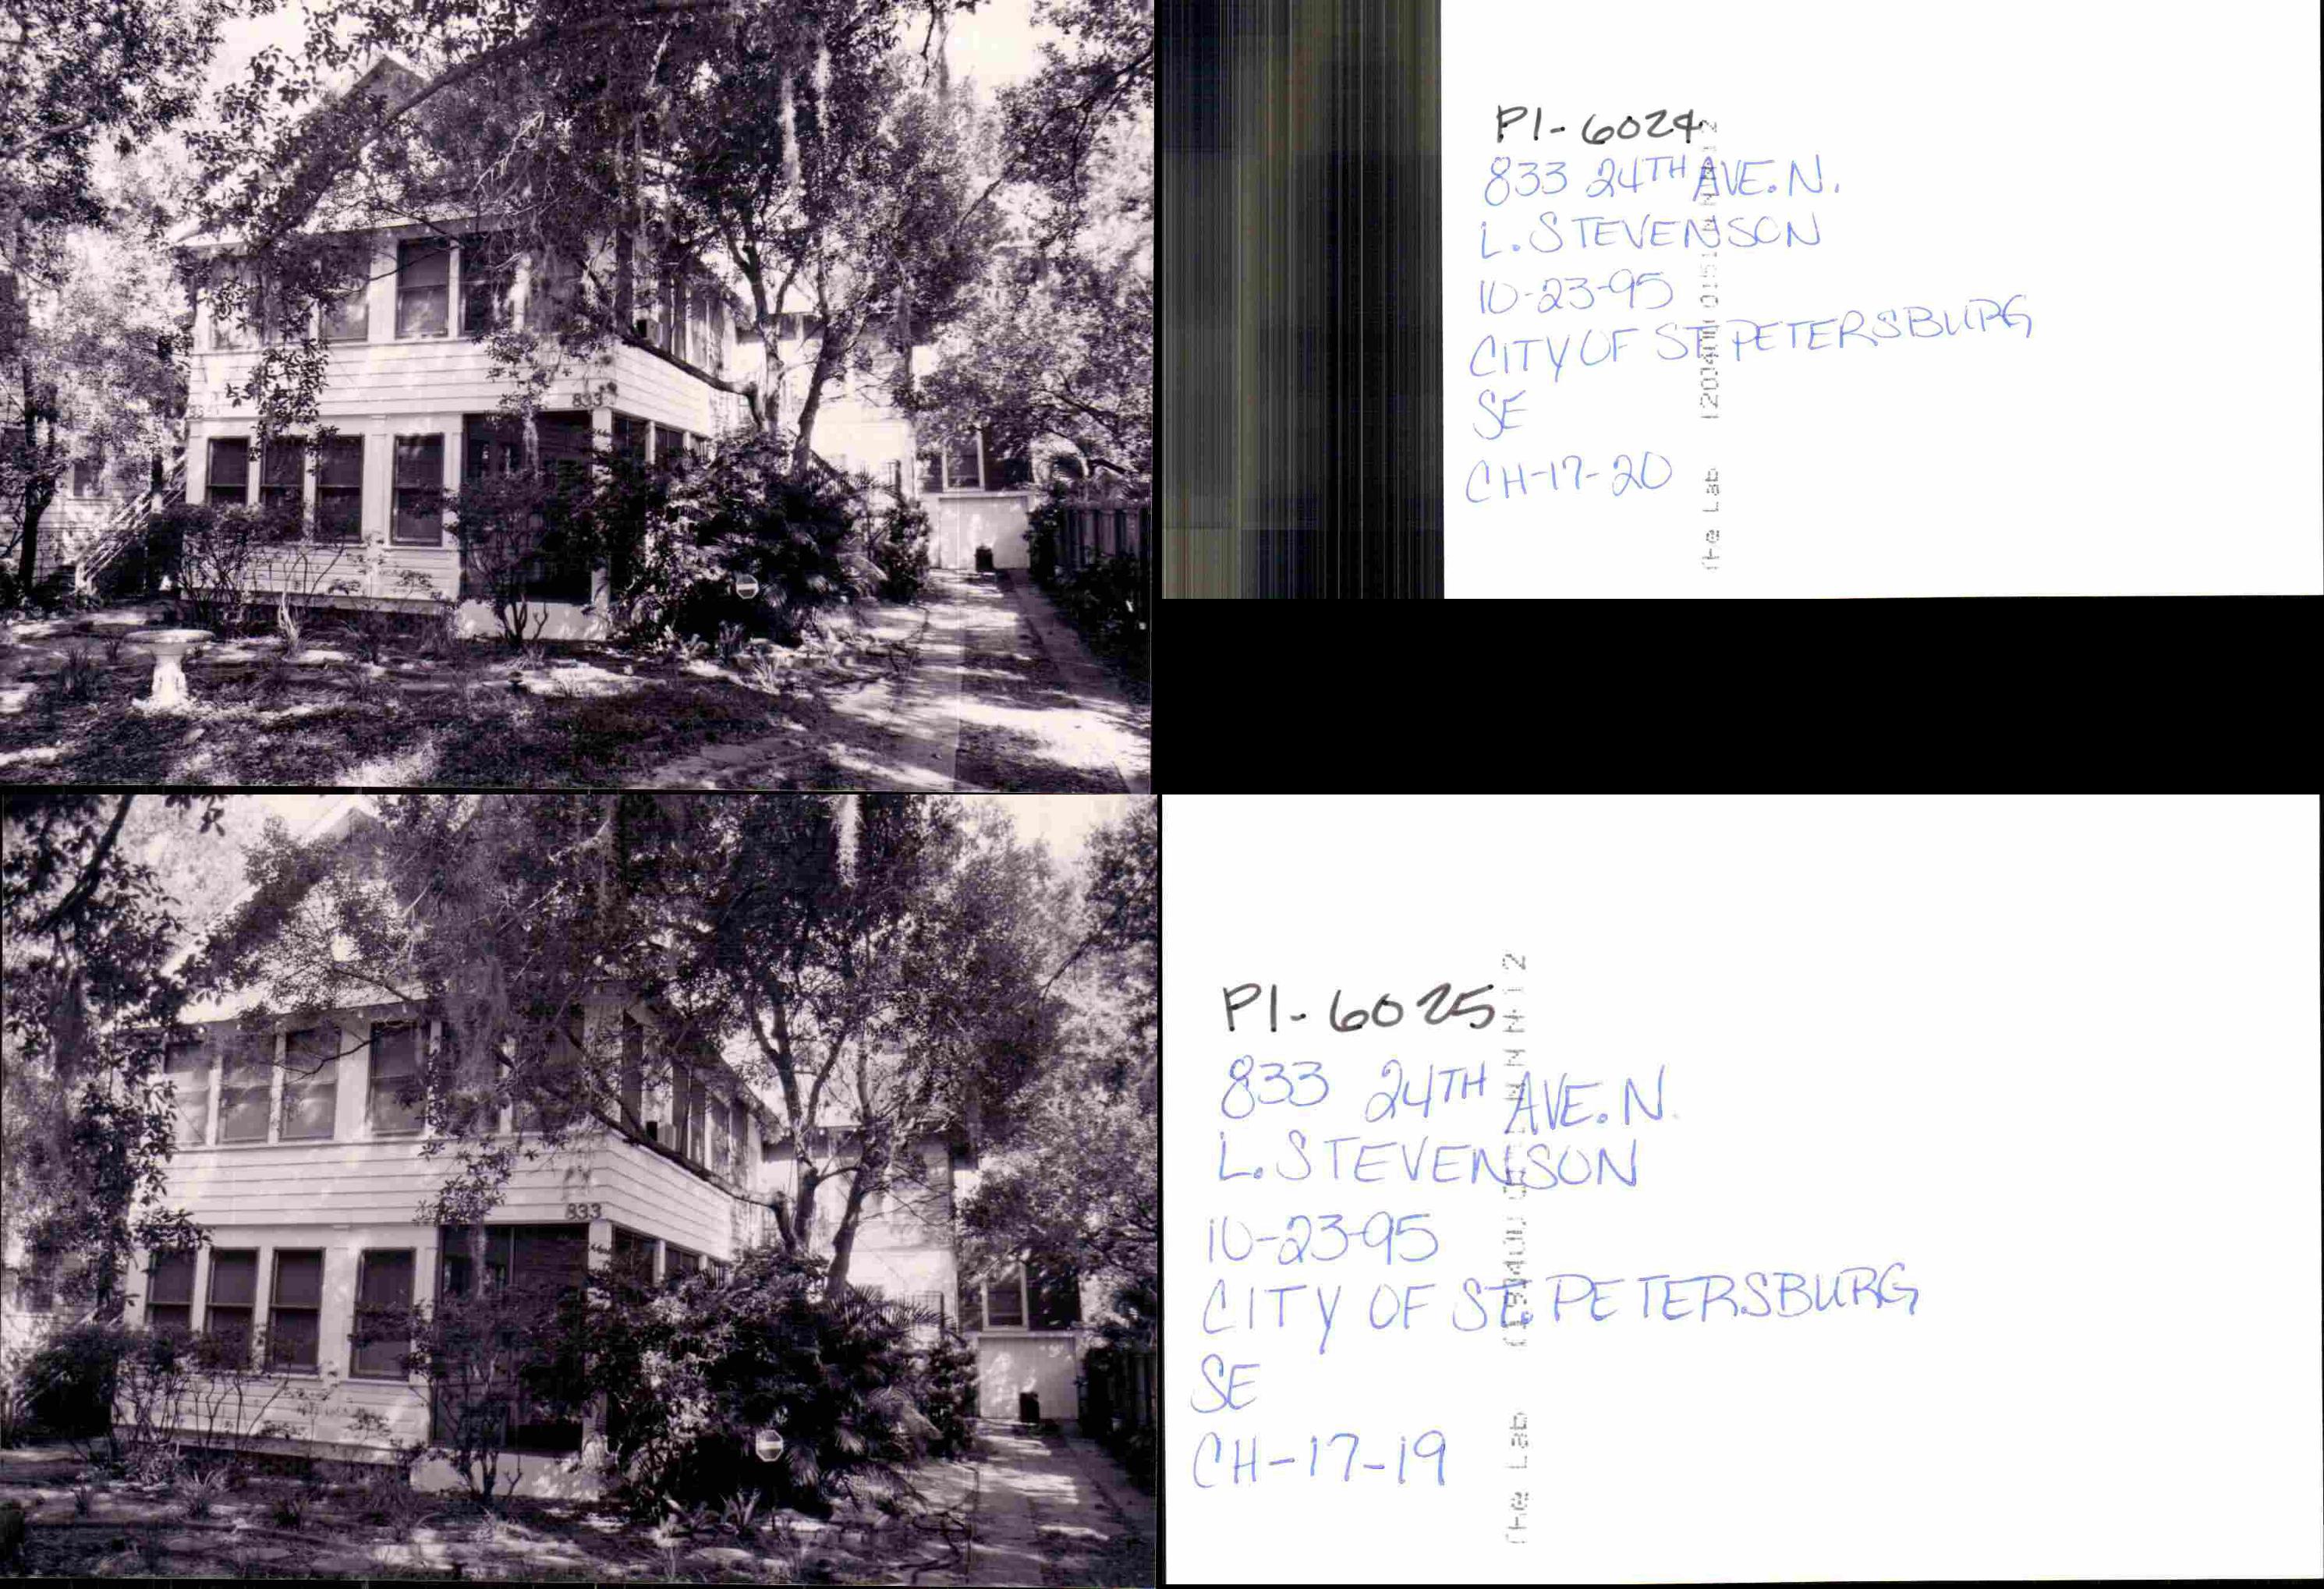 833
PI-6024
833 24TH AVE. N.
L. STEVENSON
10-23-95
CITY OF ST. PETERSBURG
SE
CH-17-20
The Lab
833
PI-6025
833 24TH AVE. N.
L. STEVENSON
10-23-95
CITY OF ST. PETERSBURG
SE
CH-17-19
The Lab